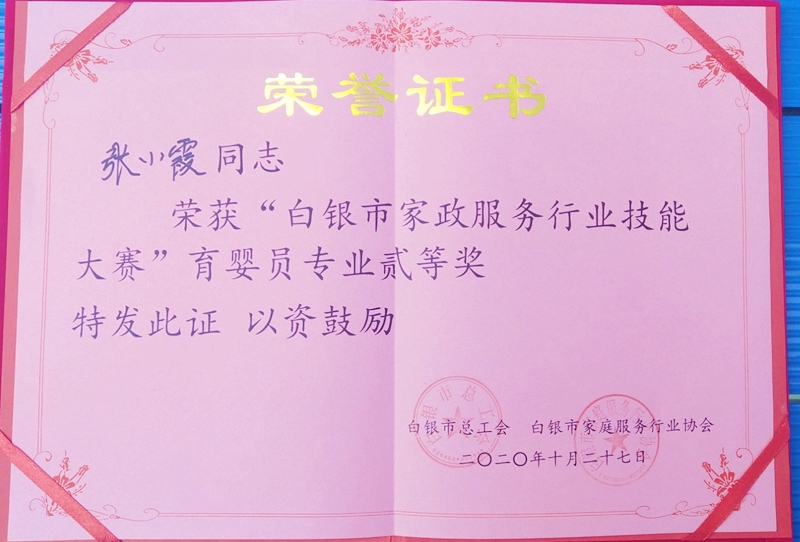 荣誉证书
张小霞同志
荣获“白银市家政服务行业技能
大赛”育婴员专业贰等奖
特发此证 以资鼓励
白银市总工会 白银市家庭服务行业协会
二〇二〇年十月二十七日